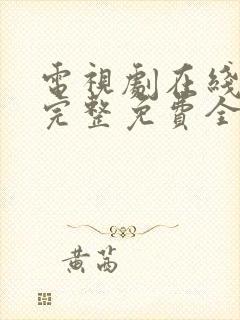 電視劇在綫
完整免費全
黄茜